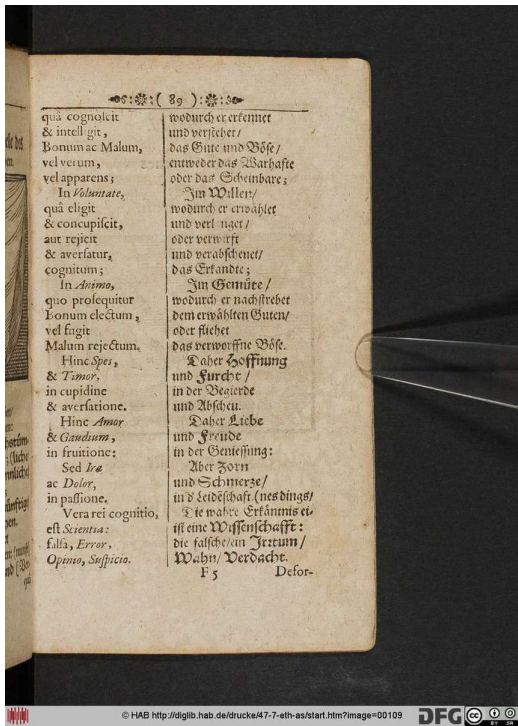 ( 89 )
quâ cognoſcit
& intelligit,
Bonum ac Malum,
vel verum,
vel apparens;
In Voluntate,
quâ eligit
& concupiſcit,
aut rejicit
& averſatur,
cognitum;
In Animo,
quo proſequitur
Bonum electum,
vel fugit
Malum rejectum.
Hinc Spes,
& Timor,
in cupidine
& averſatione.
Hinc Amor
& Gaudium,
in fruitione:
Sed Ira
ac Dolor,
in paſſione.
Vera rei cognitio,
eſt Scientia:
falſa, Error,
Opinio, Suſpicio.
wodurch er erkennet
und verſtehet/
das Gute und Böſe/
entweder das Warhafte
oder das Scheinbare;
Im Willen/
wodurch er erwählet
und verlanget/
oder verwirft
und verabſcheuet/
das Erkandte;
Im Gemüte/
wodurch er nachſtrebet
dem erwählten Guten/
oder fliehet
das verworffne Böſe.
Daher Hoffnung
und Furcht/
in der Begierde
und Abſcheu.
Daher Liebe
und Freude
in der Genieſſung:
Aber Zorn
und Schmerze/
in d' Leidēſchaft. (nes dings/
Die wahre Erkäntnis ei-
iſt eine Wiſſenſchafft:
die falſche/ein Irrtum/
Wahn/ Verdacht.
F 5
Defor-
© HAB http://diglib.hab.de/drucke/47-7-eth-as/start.htm?image=00109
DFG
CC BY SA